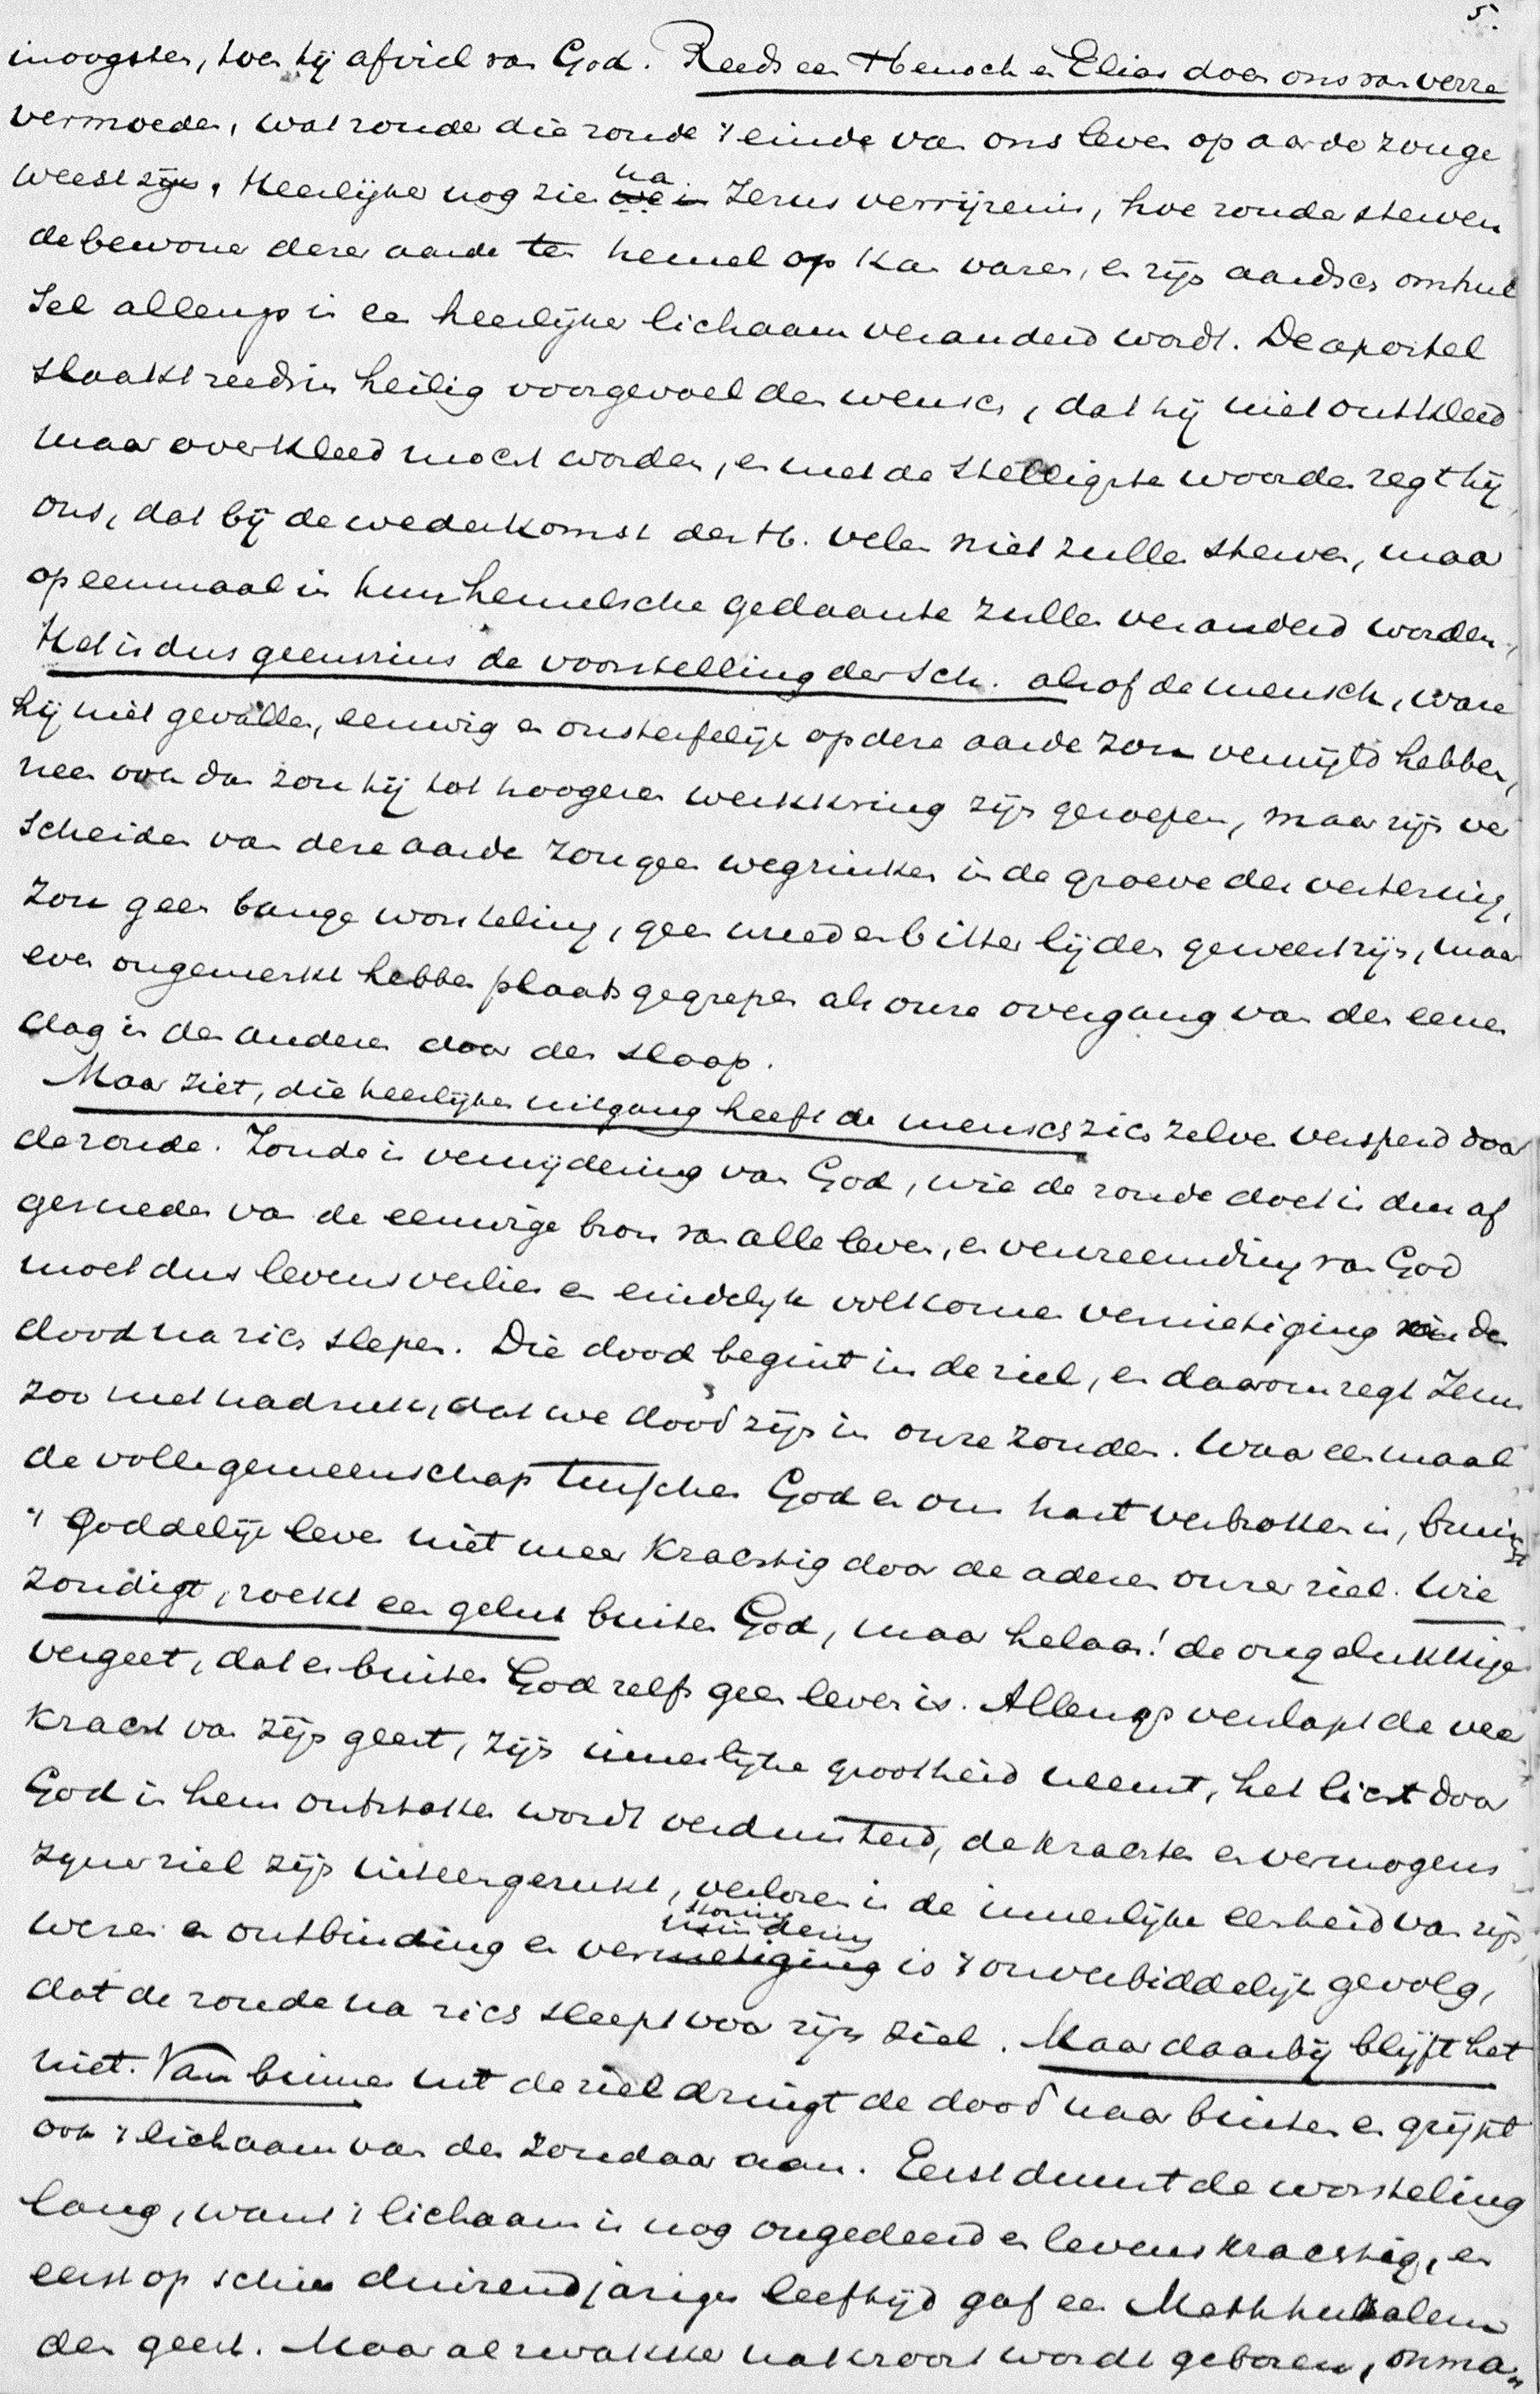 5.
inoogsten, toen hij afviel van God. Reeds een Henoch en Elias doen ons van verre
vermoeden, wat zonder die zonde 't einde van ons leven op aarde zou ge
weest zijn. Heerlijker nog zien na Jezus verrijzenis, hoe zonder sterven
de bewoner dezer aarde ten hemel op kan varen, en zijn aardsch omhul
sel allengs in een heerlijker lichaam veranderd wordt. De apostel
slaakt reeds in heilig voorgevoel den wensch, dat hij niet ontkleed
maar overkleed mocht worden, en met de stelligste woorden zegt hij
ons, dat bij de wederkomst des H. velen niet zullen sterven, maar
opeenmaal in hun hemelsche gedaante zullen veranderd worden,
Het is dus geenszins de voorstelling der Sch. alsof de mensch, ware
hij niet gevallen, eeuwig en onsterfelijk op deze aarde zou vermijld hebben,
neen ook dan zou hij tot hoogeren werkkring zijn geroepen, maar zijn ver
scheiden van deze aarde zou geen wegzinken in de groeve der vertering,
zou geen bange worsteling, geen wreed en bitter lijden geweest zijn, maar
even ongemerkt hebben plaats gegrepen als onze overgang van den eenen
dag in den anderen door den slaap.
Maar ziet, die heerlijken uitgang heeft de mensch zich zelven versperd door
de zonde. Zonde is verwijdering van God, wie de zonde doet is dus af
gesneden van de eeuwige bron van alle leven, en vervreemding van God
moet dus levensverlies en eindelijk volkomen vernietiging in den
dood na zich slepen. Die dood begint in de ziel, en daarom zegt Jezus
zoo met nadruk, dat we dood zijn in onze zonden. Waar eenmaal
de volle gemeenschap tusschen God en ons hart verbroken is, bruist
't goddelijk leven niet meer krachtig door de aderen onzer ziel. Wie
zondigt, zoekt een geluk buiten God, maar helaas! de ongelukkige
vergeet, dat er buiten God zelfs geen leven is. Allengs verslapt de veer
kracht van zijn geest, zijn innerlijke grootheid neemt, het licht door
God in hem ontstoken wordt verduisterd, de krachten en vermogens
zijner ziel zijn uiteengerukt, verloren is de innerlijke eenheid van zijn
wezen en ontbinding en verstoring is 't onverbiddelijk gevolg,
dat de zonde na zich sleept voor zijn ziel. Maar daarbij blijft het
niet. Van binnen uit de ziel dringt de dood naar buiten en grijpt
ook 't lichaam van den zondaar aan. Eerst duurt de worsteling
lang, want 't lichaam is nog ongedeerd en levenskrachtig, en
eerst op schier duizendjarigen leeftijd gaf een Methusalem
den geest. Maar al zwakker nakroost wordt geboren, onma„